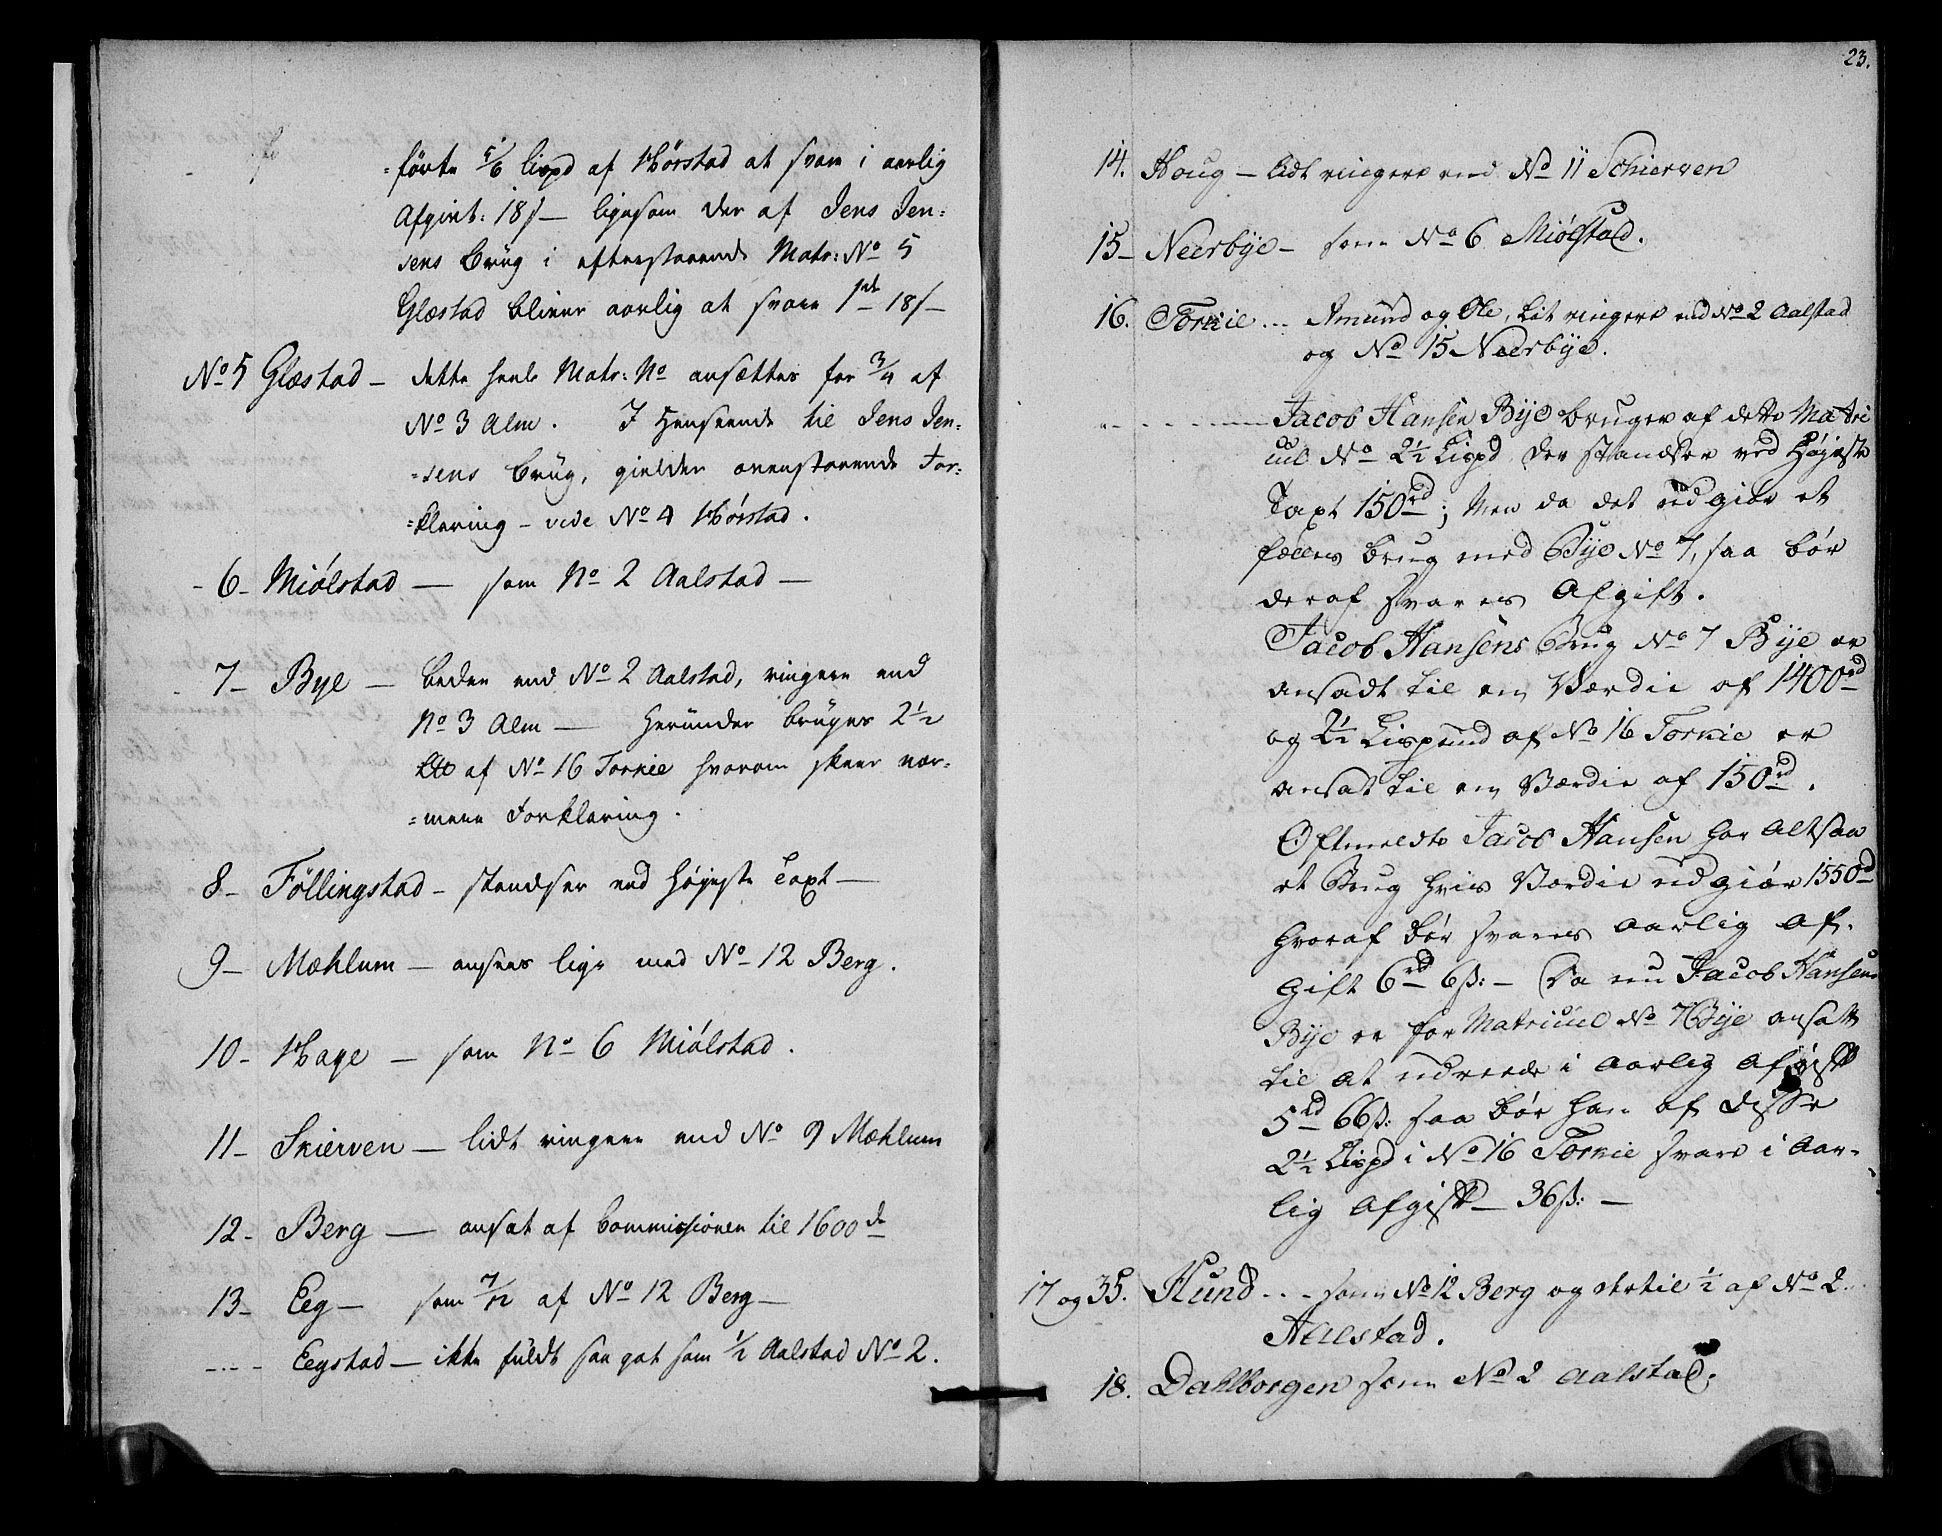 =förte 5/6 lispd af Hörstad at svare i aarlig
Afgivt: 18 s — ligesom der af Jens Jen=
sens Brüg i efterstaaende Matr: No 5
Glæstad bliver aarlig at svare 1 rd 18 s —
No 5 Glæstad — dette heele Matr: No ansættes for 3/4 af
No 3 Alm. I Henseende til Jens Jen=
=sens Brüg, gielder ovenstaaende For=
=klaring — vide No 4 Hörstad.
- 6 - Miölstad — som No 2 Aalstad —
7 - Bye — bedre end No 2 Aalstad, ringere end
No 3 Alm — Heründer brüges 2 1/2
af No 16 Torkie hvorom skeer nær=
=mere Forklaring.
8 - Föllingstad — standser ved Høyeste Taxt —
9 - Mæhlum — ansees lige med No 12 Berg.
10 - Hage — som No 6 Miölstad.
11 - Skierven — lidt ringere end No 9 Mæhlum
12 - Berg — ansat af Commissionen til 1600 dr
13 - Eeg — som 7/12 af No 12 Berg —
---- Eegstad — ikke füldt saa got som 1/2 Aalstad No 2.
23.
14. Houg — lidt ringere end No 11 Schierven
15 - Neerbye — som No 6 Miölstad.
16. Torkie ... Amund og Ole, lit ringere end No 2 Aalstad
og No 15 Neerbye.
Jacob Hansen Bye bruger af dette Matri
cul No 2 1/2 Lispd der standser ved Høyeste
Taxt 150 rd; Men da det udgiør et
fælles brug med Bye No 7, saa bør
deraf svares Afgift.
Jacob Hansens Brug No 7 Bye er
ansadt til en Værdie af 1400 rd
og 2 1/2 Lispund af No 16 Torkie er
ansat til en Værdie af 150 rd.
Oftmeldte Jacob Hansen har altsaa
et Brug hvis Værdie udgiør 1550 rd
hvoraf bør svares aarlig Af-
gift 6 rd 6 ß: — Da nu Jacob Hansen
Bye er for Matricul No 7 Bye ansatt
til at udreede i aarlig Afgift
5 rd 66 ß: saa bør han af disse
2 1/2 Lispd i No 16 Torkie svare i aar-
lig Afgift — 36 ß: —
17 og 35. Hund ... som No 12 Berg og dertil 1/2 af No 2.
Aalstad.
18. Dahlborgen som No 2 Aalstad.